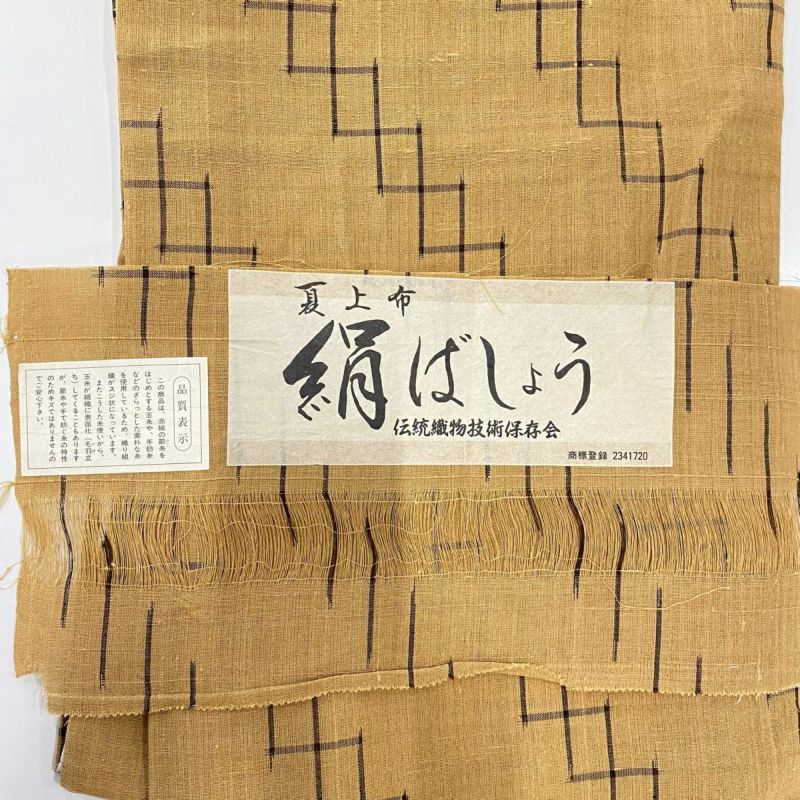 夏上布
絹ばしょう
伝統織物技術保存会
商標登録 2341720
品質表示
この商品は、赤城の節糸を
はじめとする玉糸や、手紡糸
などのざらっとした素朴な糸
を使用しているため、織り組
織がスジ状になっています。
またこうした糸使いから、
玉糸が組織に表面化(毛羽立
ち)してくることもあります
が、節糸や手で紡ぐ糸の特性
のためキズではありませんの
でご安心下さい。